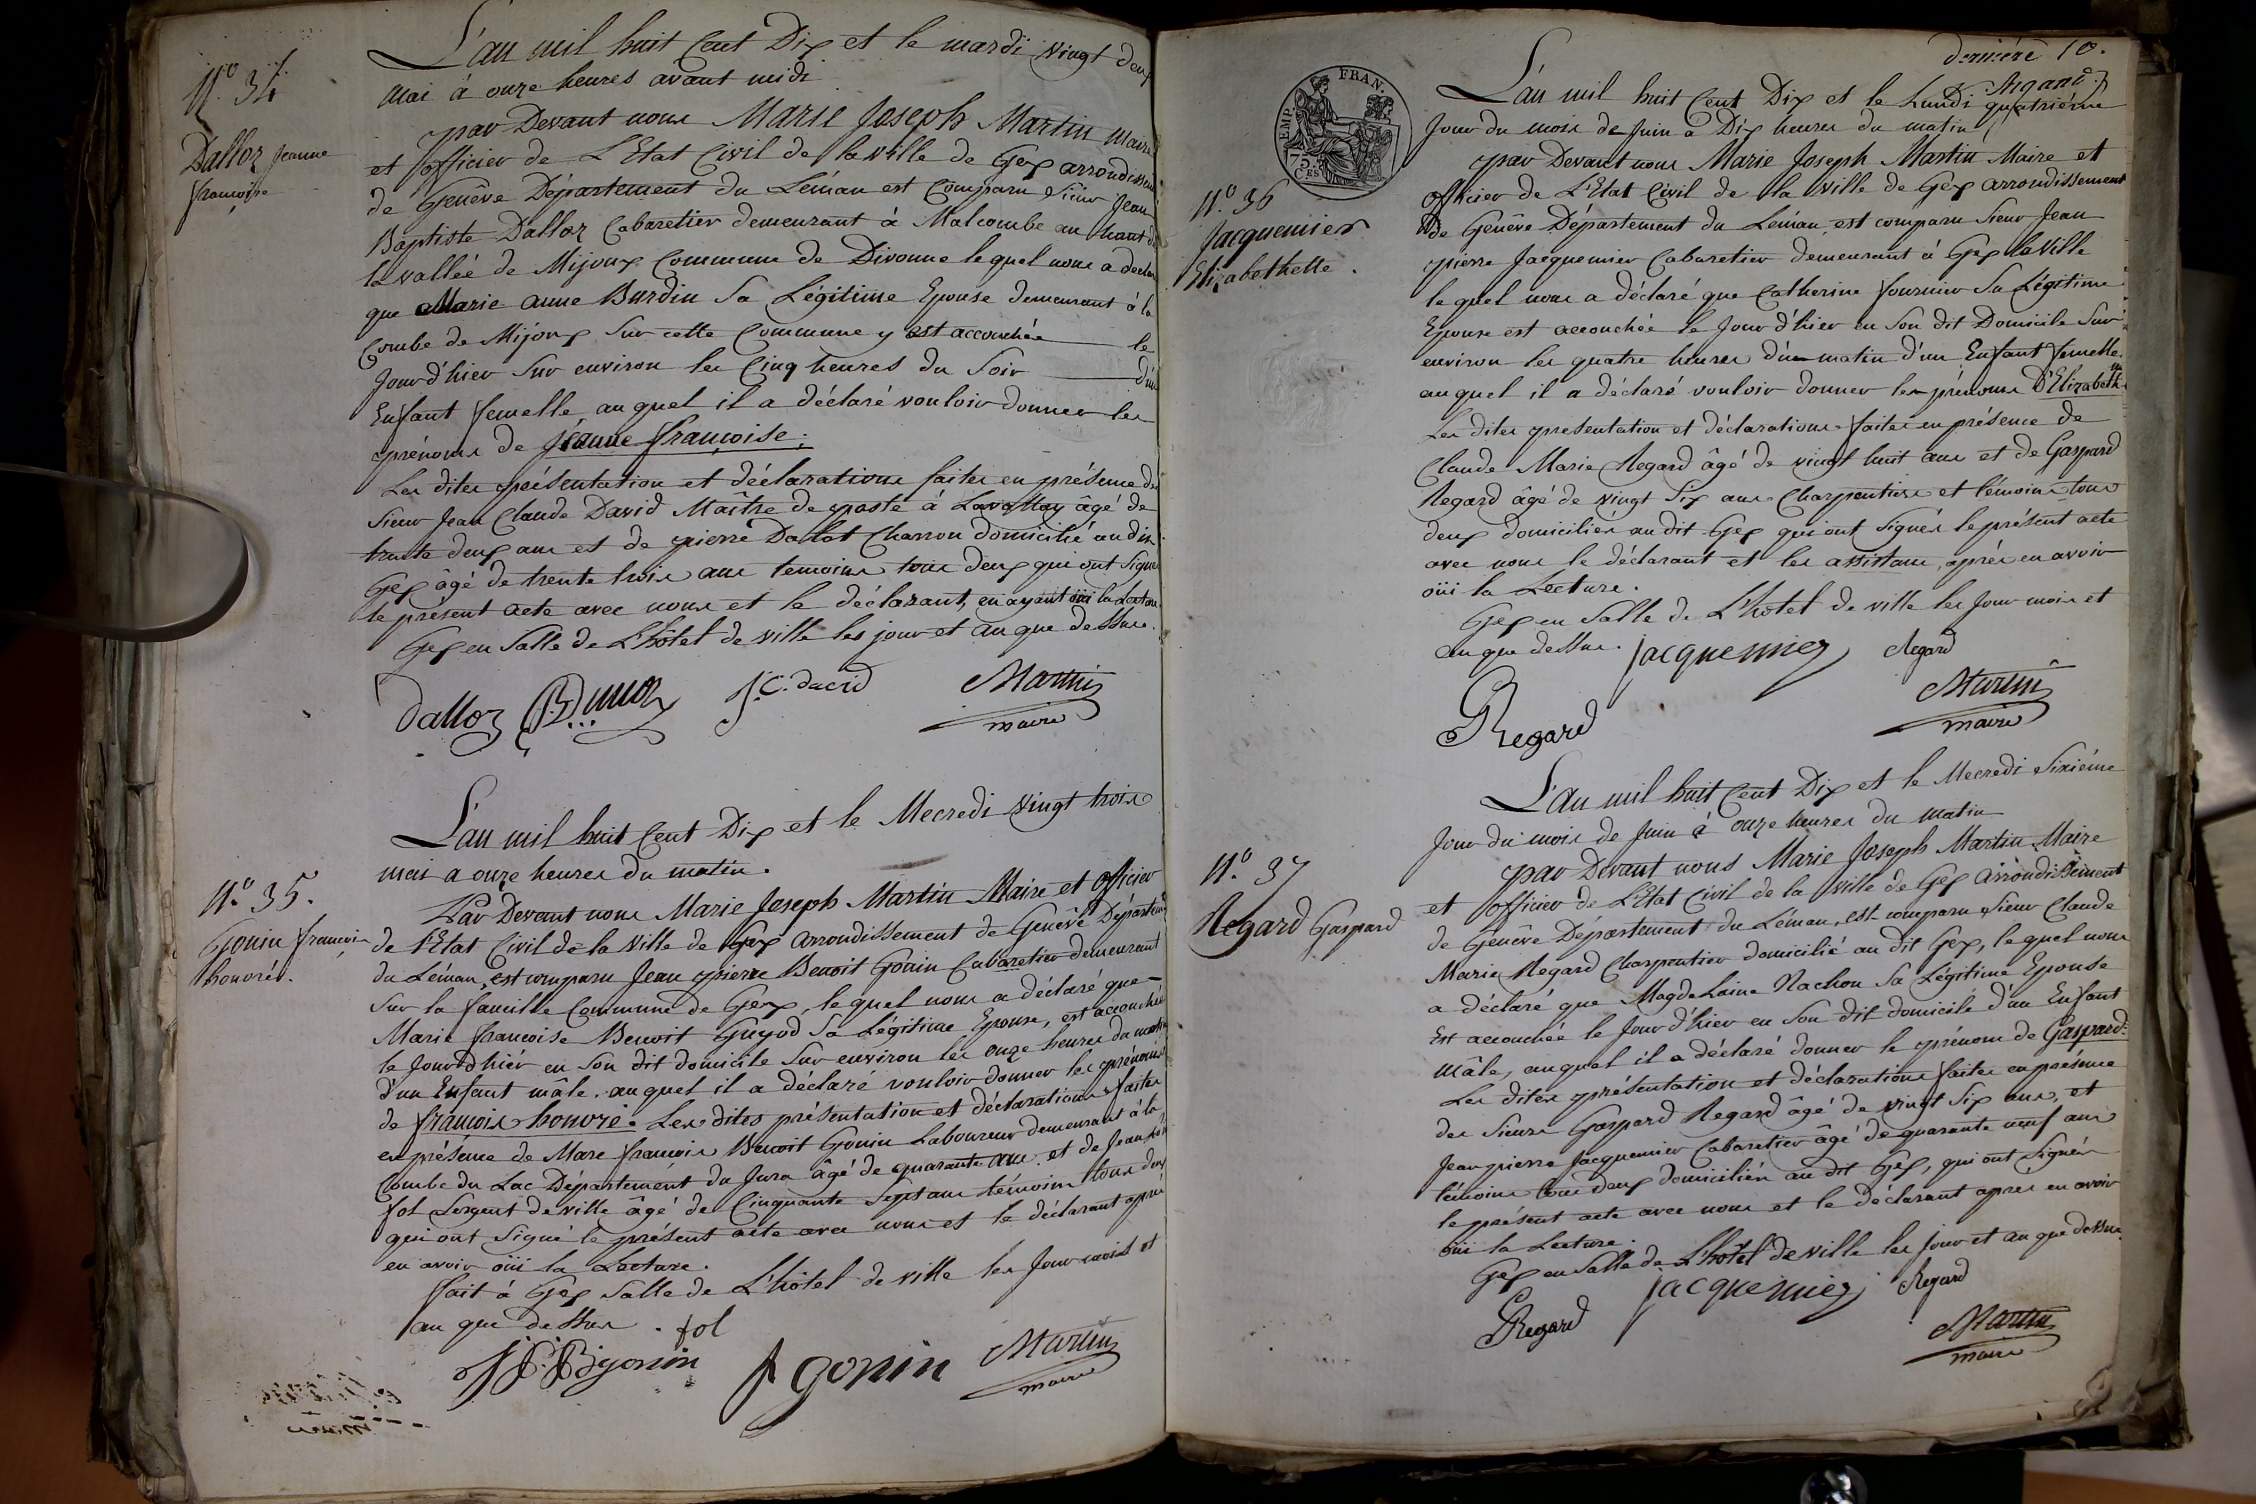 N.° 34
Dalloz Jeanne
françoise
L'an mil huit Cent Dix et le mardi vingt deux
Mai à onze heures avant midi
par Devant nous Marie Joseph Martin Maire
et officier de L'Etat Civil de la ville de Gex arrondissem
de Genêve Département du Léman est Comparu Sieur Jean
Baptiste Dalloz Cabaretier demeurant à Malcombe au haut de
la vallée de Mijoux Commune de Divonne lequel nous a déclaré
que Marie anne Burdin Sa Légitime Epouse demeurant à la
Combe de Mijoux Sur cette Commune y est accouchée le
Jour d'hier Sur environ les Cinq heures du Soir d'un
Enfant femelle auquel il a déclaré vouloir donner les
prénoms de Jeanne françoise.
Les dites présentation et déclarations faites en présence du
Sieur Jean Claude David Maître de poste à Lavattay âgé de
trente deux ans et de pierre Dallot Charron domicilié au dit
Gex âgé de trente trois ans temoins tous deux qui ont Signé
le présent acte avec nous et le déclarant, en ayant oüi la Lecture.
Gex en Salle de L'hôtel de ville les jour et an que dessus.
Dalloz J. C. david Martin
maire
N.° 35.
Gonin françois
honoré.
L'an mil huit Cent Dix et le Mecredi vingt trois
mai a onze heures du matin.
Par Devant nous Marie Joseph Martin Maire et officier
de L'Etat Civil de la ville de Gex arrondissement de Genêve Départem
du Léman, est comparu Jean pierre Benoit Gonin Cabaretier demeurant
Sur la faucille Commune de Gex, lequel nous a déclaré que
Marie françoise Benoit Guyod Sa Légitime Epouse, est accouchée
le Jour d'hiér en Son dit domicile Sur environ les onze heures du matin
d'un Enfant mâle, auquel il a déclaré vouloir donner les prénoms
de françois honoré. Les dites présentation et déclarations faites
en présence de Marc françois Benoit Gonin Laboureur demeurant à la
Combe du Lac Département du Jura âgé de quarante ans et de Jean
fol Sergent de ville âgé de Cinquante Sept ans témoins tous deux
qui ont Signé le présent acte avec nous et le déclarant après
en avoir oüi la Lecture.
fait à Gex Salle de L'hôtel de ville les Jour mois et
an que dessus. fol
gonin Martin
maire
dernière 10.
N.° 36
Jacquemier
Elizabethette.
EMP. FRAN.
75.
C.ES
L'an mil huit Cent Dix et le Lundi quatriéme
Jour du mois de Juin a Dix heures du matin
par Devant nous Marie Joseph Martin Maire et
officier de L'Etat Civil de la ville de Gex arrondissement
de Genêve Département du Léman, est comparu Sieur Jean
pierre Jacquemier Cabaretier demeurant à Gex la Ville
lequel nous a déclaré que Catherine fournier Sa Légitime
Epouse est accouchée le Jour d'hier en Son dit Domicile Sur
environ les quatre heures du matin d'un Enfant femelle
auquel il a déclaré vouloir donner les prénoms D'Elizabeth
Les dites présentation et déclarations faites en présence de
Claude Marie Regard âgé de vingt huit ans et de Gaspard
Regard âgé de vingt Six ans Charpentiers et témoins tous
deux domiciliés au dit Gex qui ont Signés le présent acte
avec nous le déclarant et les assistans, après en avoir
oüi la Lecture.
Gex en Salle de L'hôtel de ville les Jour mois et
an que dessus. jacquemier Regard
G Regard Martin
maire
N.° 37
Regard Gaspard
L'an mil huit Cent Dix et le Mecredi Sixiéme
Jour du mois de Juin à onze heures du matin
par Devant nous Marie Joseph Martin Maire
et officier de L'Etat Civil de la ville de Gex arrondissement
de Genêve Département du Léman, est comparu Sieur Claude
Marie Regard Charpentier domicilié au dit Gex, lequel nous
a déclaré que Magdelaine Nachon Sa Légitime Epouse
Est accouchée le Jour d'hier en Son dit domicile d'un Enfant
mâle, auquel il a déclaré donner le prénom de Gaspard.
Les dites présentation et déclarations faites en présence
des Sieurs Gaspard Regard âgé de vingt Six ans, et
Jean pierre Jacquemier Cabaretier âgé de quarante neuf ans
témoins tous deux domiciliés au dit Gex, qui ont Signés
le présent acte avec nous et le déclarant apres en avoir
oüi la Lecture.
Gex en Salle de L'hôtel de ville les Jour et an que dessus
jacquemier Regard
G Regard Martin
maire